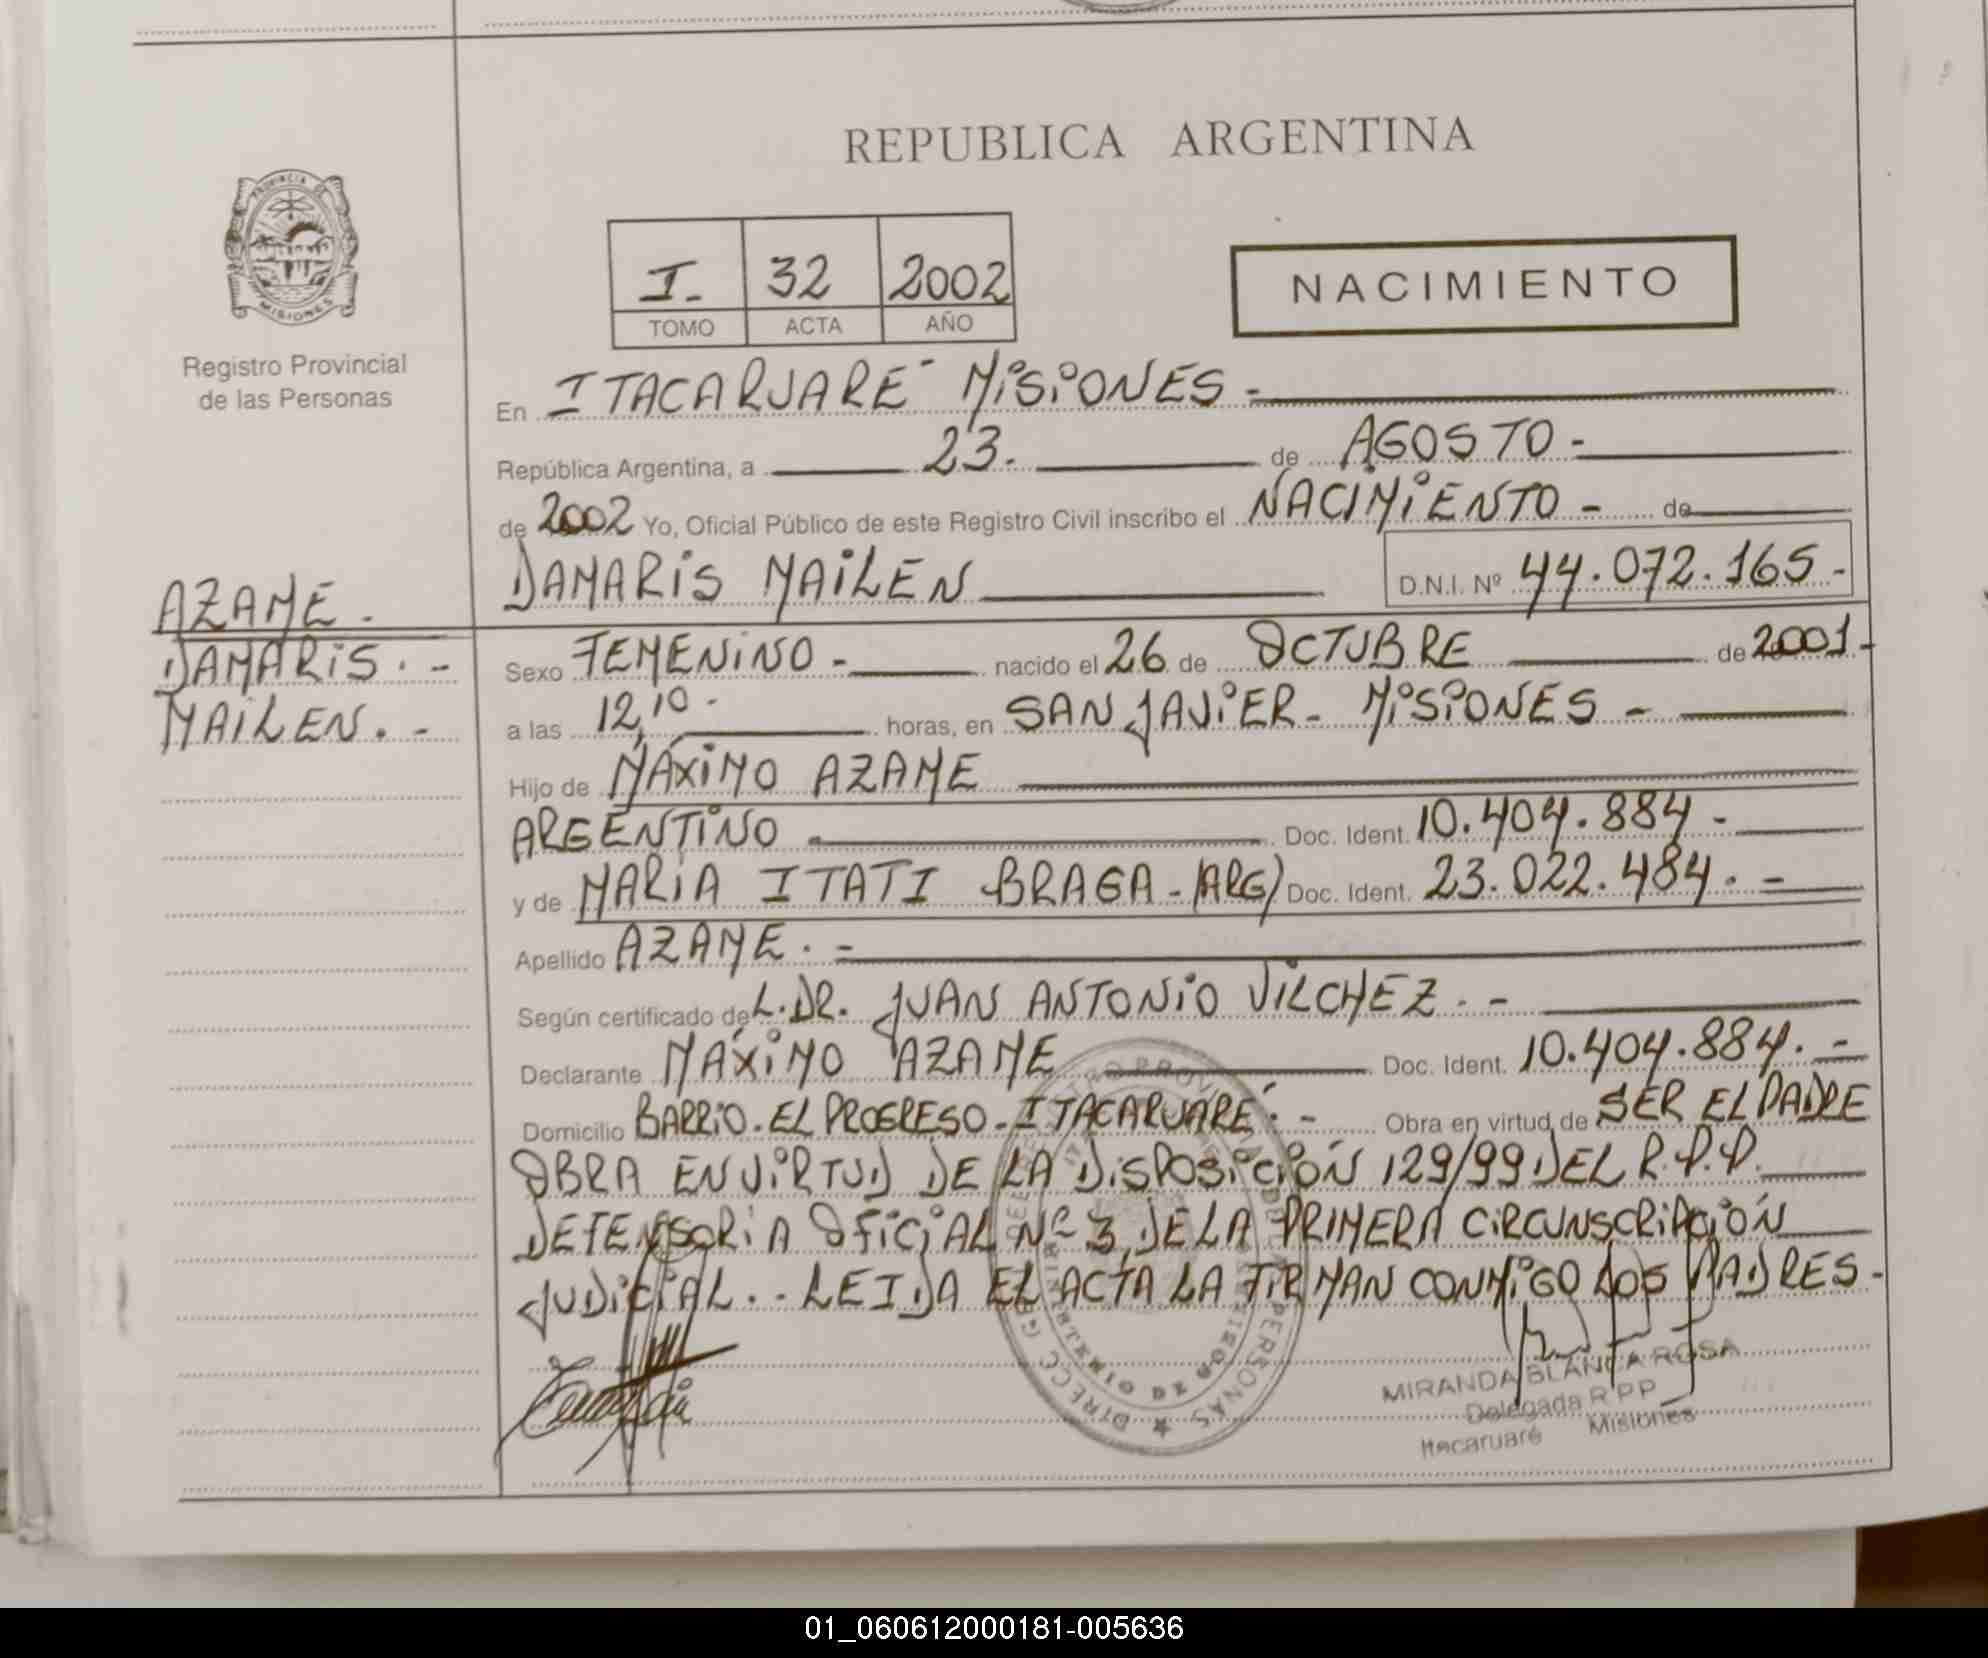 REPUBLICA ARGENTINA
PROVINCIA DE
MISIONES
Registro Provincial
de las Personas
I.- 32 2002
TOMO ACTA AÑO
NACIMIENTO
En ITACARUARÉ MISIONES.-
República Argentina, a 23. de AGOSTO-
de 2002 Yo, Oficial Público de este Registro Civil inscribo el NACIMIENTO - de
DAMARIS MAILEN D.N.I. Nº 44.072.165-
AZAME.-
DAMARIS.-
MAILEN.-
Sexo FEMENINO- nacido el 26 de OCTUBRE de 2001.-
a las 12,10- horas, en SAN JAVIER- MISIONES-
Hijo de MÁXIMO AZAME
ARGENTINO - Doc. Ident. 10.404.884-
y de MARIA ITATI BRAGA-(ARG) Doc. Ident. 23.022.484.-
Apellido AZAME.-
Según certificado de L.DR. JUAN ANTONIO VILCHEZ.-
Declarante MÁXIMO AZAME Doc. Ident. 10.404.884.-
Domicilio BARRIO.EL PROGRESO-ITACARUARÉ.- Obra en virtud de SER EL PADRE
OBRA EN VIRTUD DE LA DISPOSICIÓN 129/99 DEL R.P.P.
DEFENSORIA OFICIAL Nº 3 DE LA PRIMERA CIRCUNSCRIPCIÓN
JUDICIAL.. LEIDA EL ACTA LA FIRMAN CONMIGO LOS PADRES.-
MIRANDA BLANCA ROSA
Delegada R P P
Itacaruaré Misiones
01_060612000181-005636